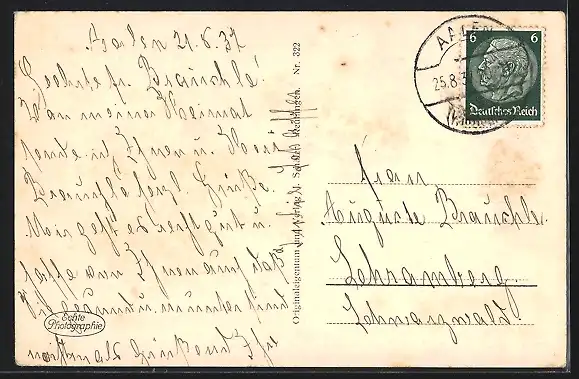 Aalen 21.8.37
Geehrte Fr. Brauchle!
Von meiner Heimat
sende ich Ihnen u. Herrn
Brauchle herzl. Grüße.
Mir geht es recht gut u.
hoffe von Ihnen auch daß
Sie gesund u. munter sind
nochmals Grüßend Ihr
Echte
Photographie
Originaleigentum und Verlag M.
Reutlingen. Nr. 322
AALEN
25.8.3
6 6
Deutsches Reich
Frau
Auguste Brauchle.
Schramberg
Schwarzwald.